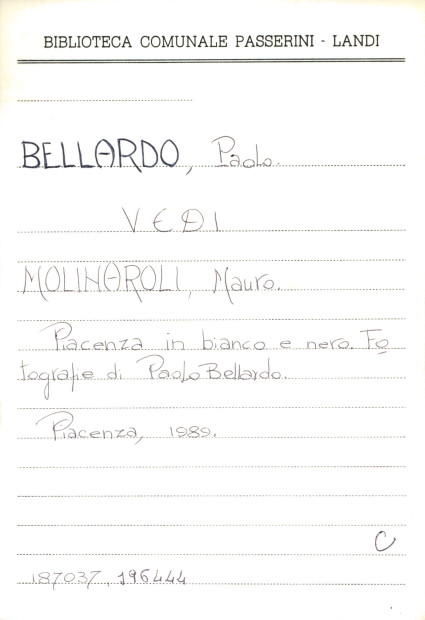 BIBLIOTECA COMUNALE PASSERINI - LANDI
BELLARDO, Paolo.
VEDI
MOLINAROLI, Mauro.
Piacenza in bianco e nero. Fo
tografie di Paolo Bellardo.
Piacenza, 1989.
C
187037, 196444